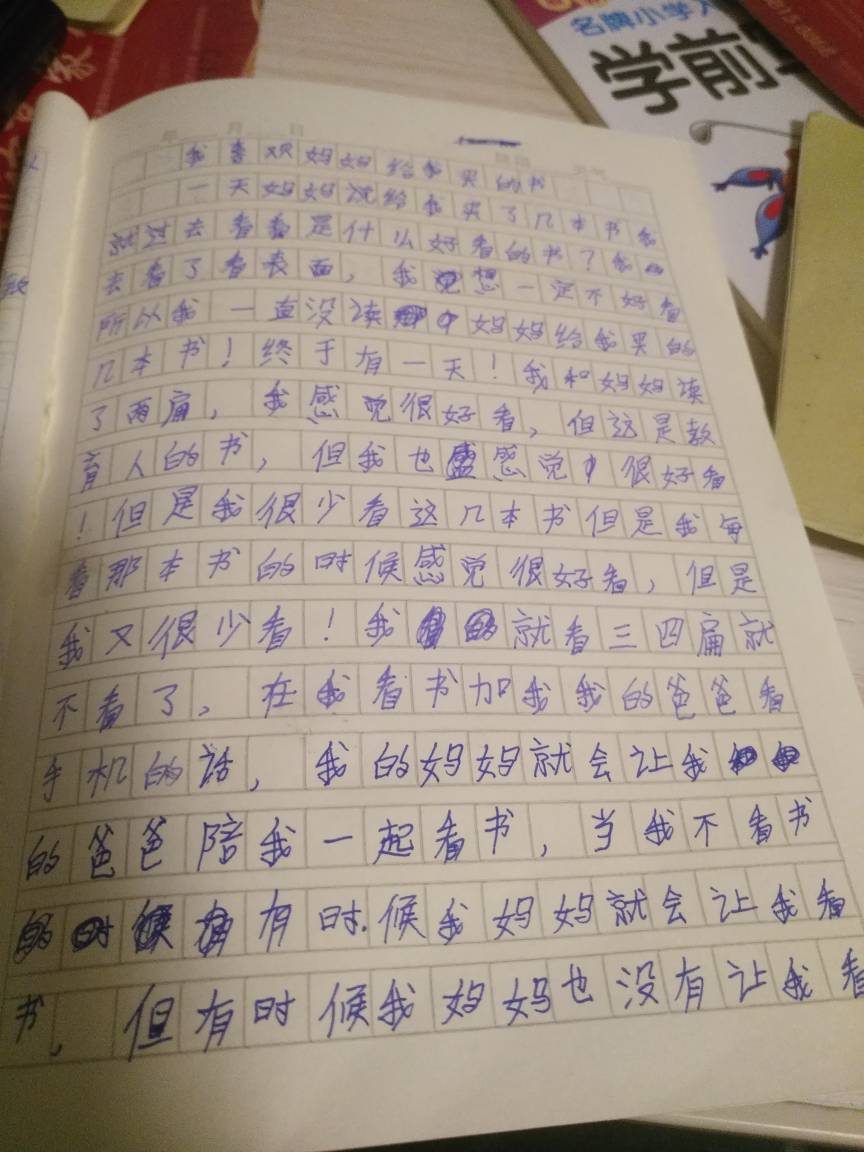 名牌小学入
学前
年 月 日
我喜欢妈妈给我买的书
一天妈妈说给我买了几本书我
就过去看看是什么好看的书?我
去看了看表面,我想一定不好看
所以我一直没读妈妈给我买的
几本书!终于有一天!我和妈妈读
了两扁,我感觉很好看,但这是教
育人的书,但我也感觉很好看
!但是我很少看这几本书但是我每
看那本书的时候感觉很好看,但是
我又很少看!我就看三四扁就
不看了,在我看书加我我的爸爸看
手机的话,我的妈妈就会让我
的爸爸陪我一起看书,当我不看书
有时候我妈妈就会让我看
书,但有时候我妈妈也没有让我看